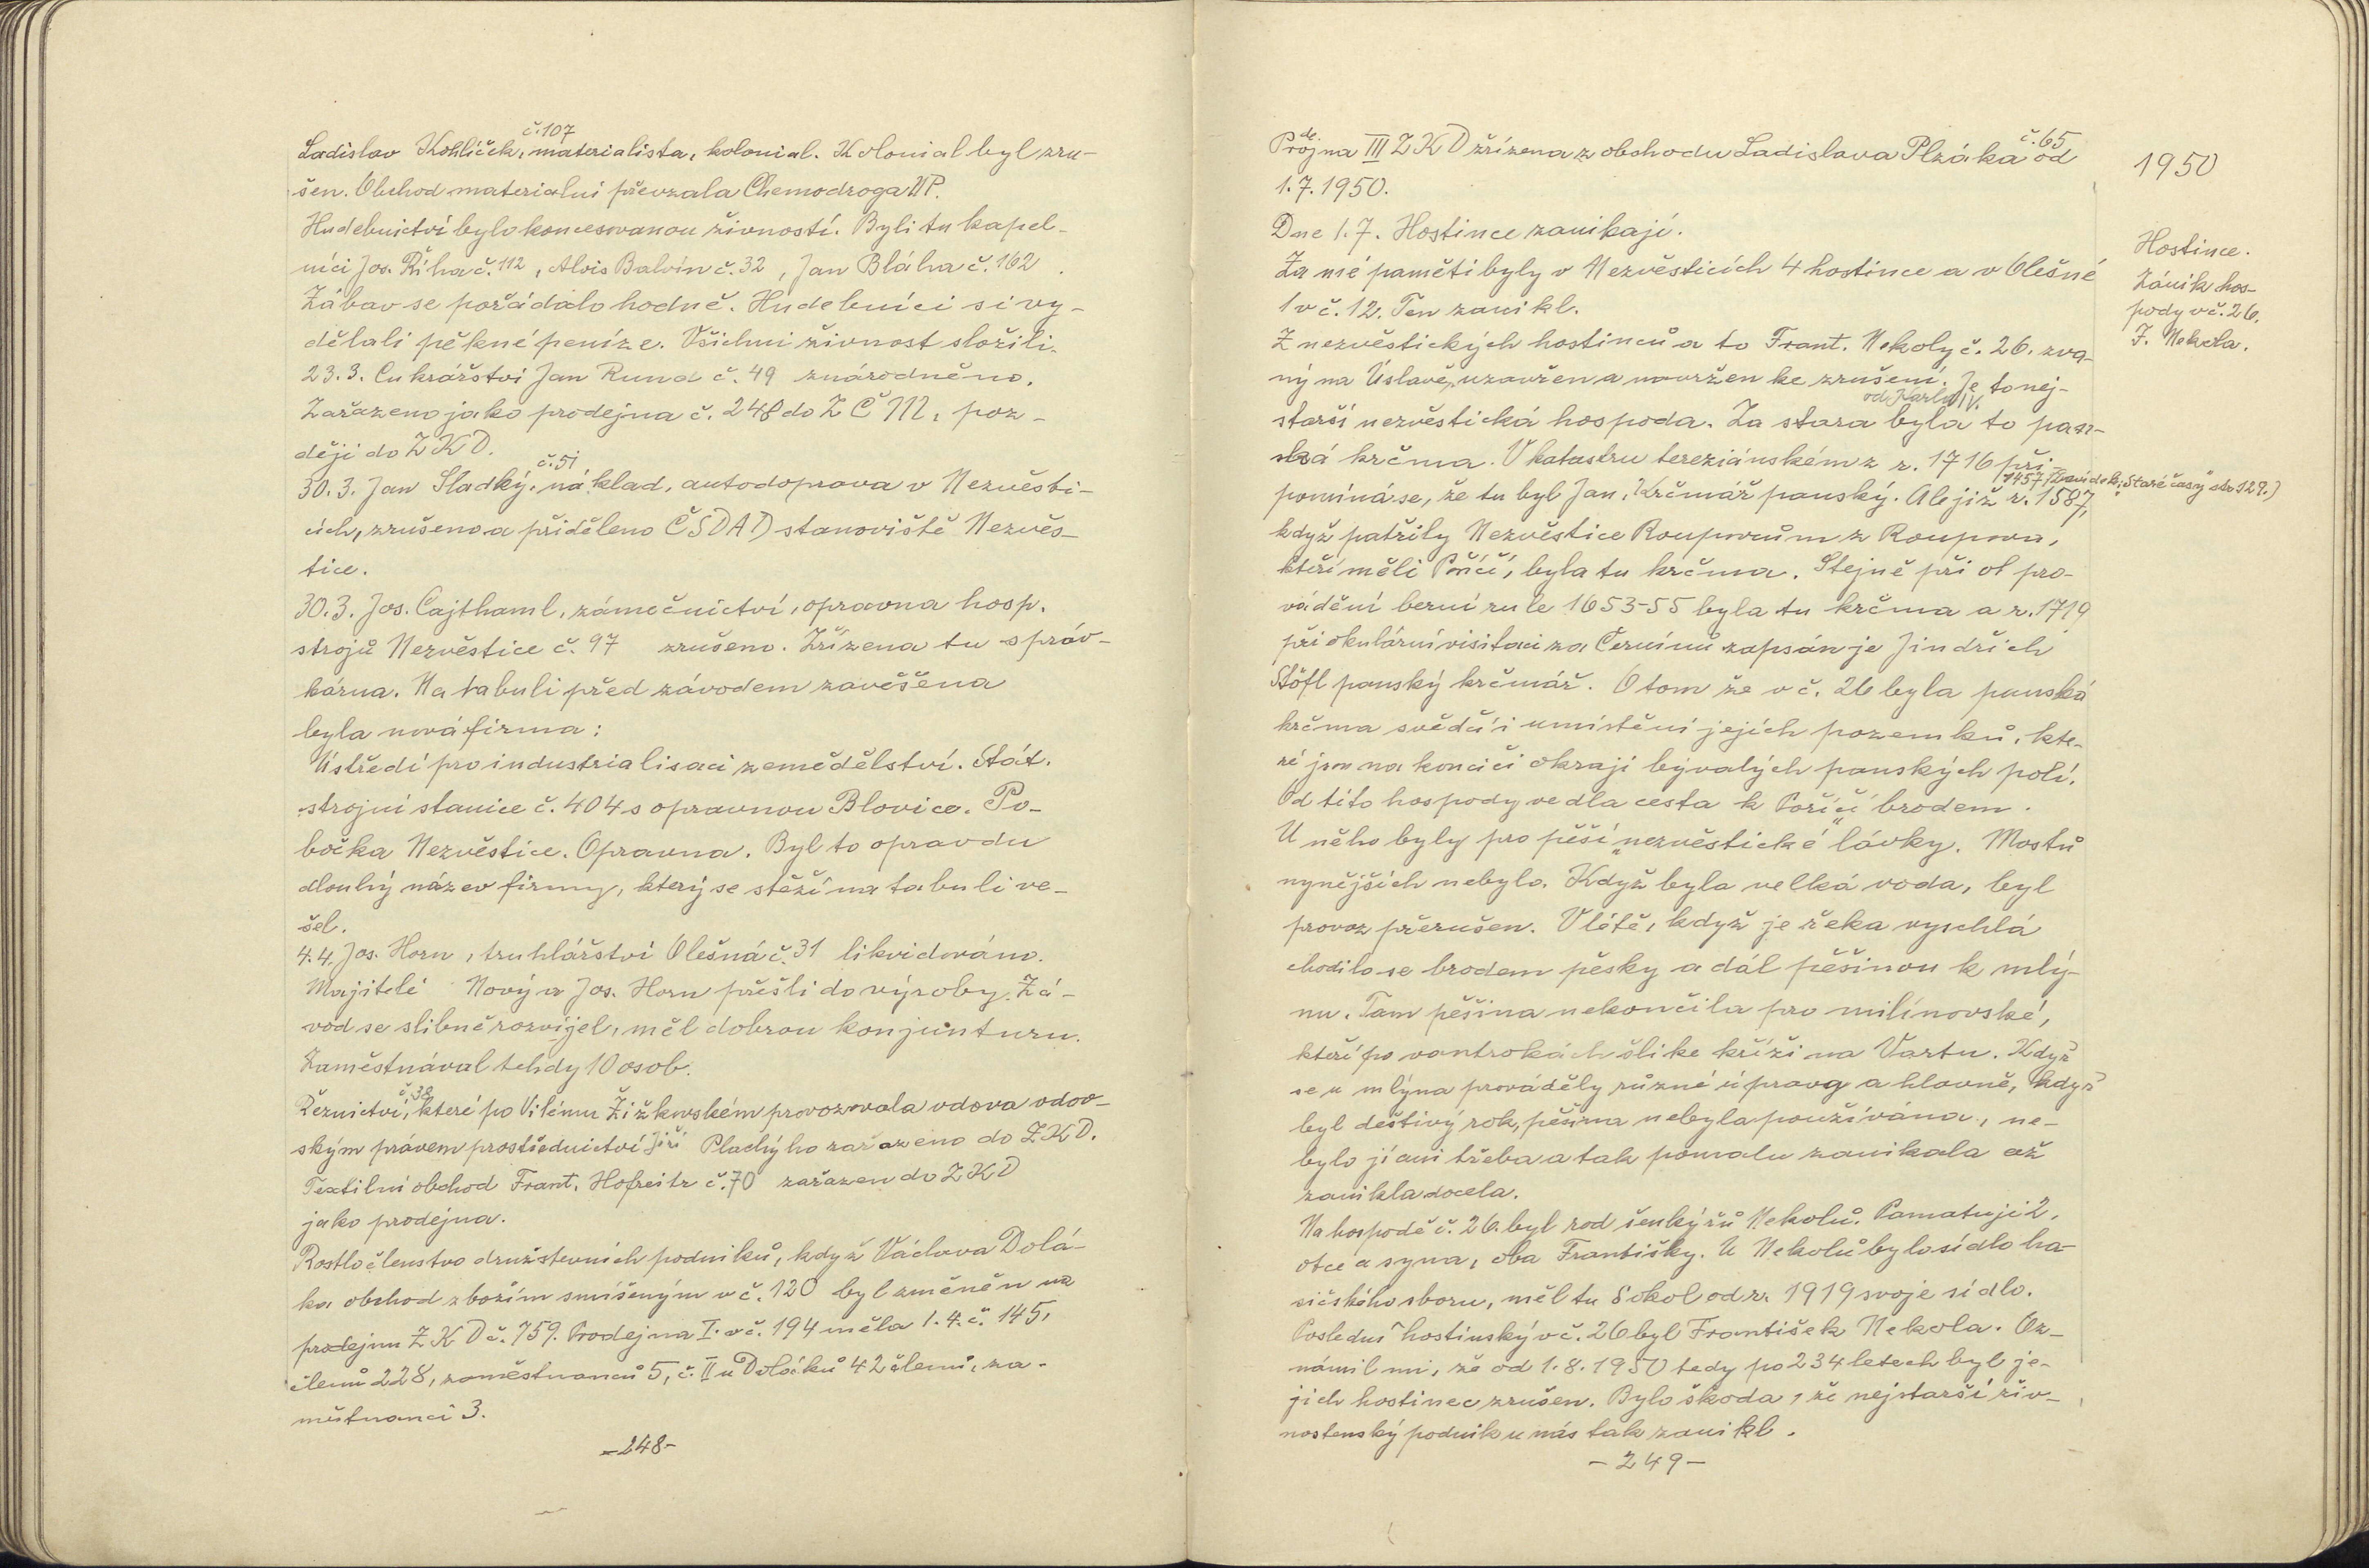 č. 107
Ladislav Kohlíček, materialista, kolonial. Kolonial byl zru-
šen. Obchod materialní převzala Chemodroga NP.
Hudebnictví bylo koncesovanou živností. Byli tu kapel-
níci Jos. Říha č. 112, Alois Balvín č. 32, Jan Bláha č. 162.
Zábav se pořádalo hodně. Hudebníci si vy-
dělali pěkné peníze. Všichni živnost složili.
23.3. Cukrářství Jan Rund č. 49 znárodněno.
Zařazeno jako prodejna č. 248 do ZČM, poz-
ději do ZKD.
č. 51
30.3. Jan Sladký, náklad. autodoprava v Nezvěsti-
cích, zrušeno a přiděleno ČSDAD stanoviště Nezvěs-
tice.
30.3. Jos. Cajthaml, zámečnictví, opravna hosp.
strojů Nezvěstice č. 97 zrušeno. Zřízena tu správ-
kárna. Na tabuli před závodem zavěšena
byla nová firma:
Ústředí pro industrialisaci zemědělství. Stát.
strojní stanice č. 404 s opravnou Blovice. Po-
bočka Nezvěstice. Opravna. Byl to opravdu
dlouhý název firmy, který se stěží na tabuli ve-
šel.
4.4. Jos. Horn, truhlářství Olešná č. 31 likvidováno.
Majitelé Nový a Jos. Horn přešli do výroby. Zá-
vod se slibně rozvíjel, měl dobrou konjunturu.
Zaměstnával tehdy 10 osob.
č. 38
Řeznictví, které po Vilému Žižkovském provozovala vdova vdov-
ským právem prostřednictví Jiří Plachýho zařazeno do ZKD.
Textilní obchod Frant. Hofreitr č. 70 zařazen do ZKD
jako prodejna.
Rostlo členstvo družstevních podniků, když Václava Dolá-
ka obchod zbožím smíšeným v č. 120 byl změněn na
prodejnu ZKD č. 759. Prodejna I. v č. 194 měla 1.4. č. 145,
členů 228, zaměstnanců 5, č. II u Doláků 42 členů, za-
městnanci 3.
-248-
de č. 65
Projna III ZKD zřízena z obchodu Ladislava Plzáka od
1.7.1950.
Dne 1.7. Hostince zanikají.
Za mé paměti byly v Nezvěsticích 4 hostince a v Olešné
1 v č. 12. Ten zanikl.
Z nezvěstických hostinců a to Frant. Nekoly č. 26. zva-
ný na Úslavě, uzavřen a navržen ke zrušení. Je to nej-
od Karla IV.
starší nezvěstická hospoda. Za stara byla to pan-
ská krčma. V katastru tereziánském z r. 1716 při
(1457, Zavidek: Staré časy str 129.)
pomíná se, že tu byl Jan, Krčmář panský. Ale již r. 1587,
když patřily Nezvěstice Roupovcům z Roupova,
kteří měli Poříčí, byla tu krčma. Stejně při ot pro-
vádění berní rule 1653-55 byla tu krčma a r. 1719
při okulární visitaci za Černínů zapsán je Jindřich
Stöfl panský krčmář. O tom že v č. 26 byla panská
krčma svědčí i umístění jejích pozemků, kte-
ré jsou na končící okraji bývalých panských polí.
Od této hospody vedla cesta k Poříčí brodem.
U něho byly pro pěší „nezvěstické" lávky. Mostů
nynějších nebylo. Když byla velká voda, byl
provoz přerušen. V létě, když je řeka vyschlá
chodilo se brodem pěšky a dál pěšinou k mlý-
nu. Tam pěšina nekončila pro milínovské,
kteří po vantrokách šli ke kříži na Vartu. Když
se u mlýna prováděly různé úpravy a hlavně, když
byl deštivý rok, pěšina nebyla používána, ne-
bylo jí ani třeba a tak pomalu zanikala až
zanikla docela.
Na hospodě č. 26. byl rod šenkýřů Nekolů. Pamatuji 2,
otce a syna, oba Františky. U Nekolů bylo sídlo ha-
sičského sboru, měl tu Sokol od r. 1919 svoje sídlo.
Poslední hostinský v č. 26 byl František Nekola. Oz-
námil mi, že od 1.8.1950 tedy po 234 letech byl je-
jich hostinec zrušen. Bylo škoda, že nejstarší živ-
nostenský podnik u nás tak zanikl.
-249-
1950
Hostince.
Zánik hos-
pody v č. 26.
F. Nekola.